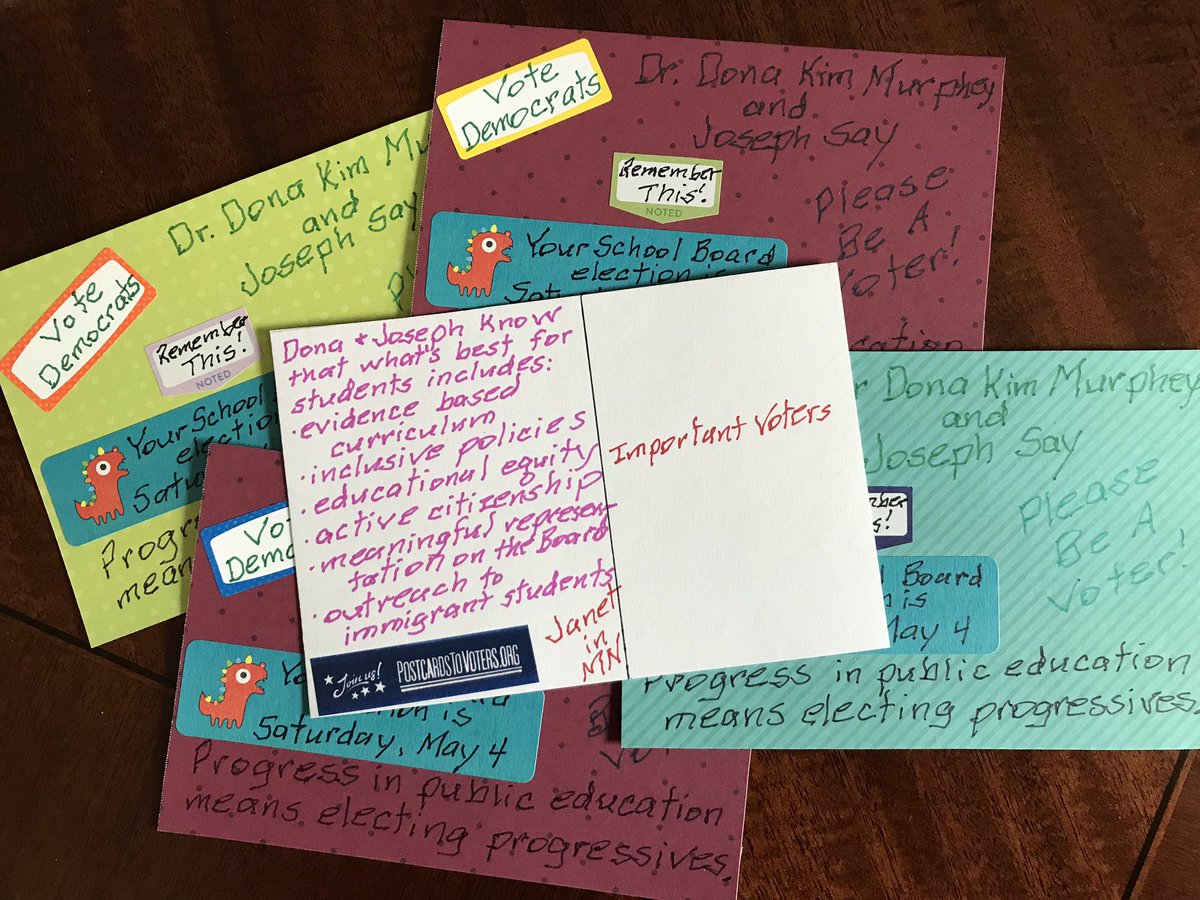 Vote
Democrats
Dr. Dona Kim Murphey
and
Joseph Say
Remember
This!
NOTED
Please
Be A
Voter!
Your School Board
election is
Dr. Dona Kim Mu
and
Joseph Say
Vote
Democrats
Remember
This!
NOTED
Your School
election
Saturday
Progre
means
Dona + Joseph Know
that what's best for
students includes:
• evidence based
curriculum
• inclusive policies
• educational equity
• active citizenship
• meaningful represen
tation on the Board
• outreach to
immigrant students
Janet
in
MN
Join us!
PostcardsToVoters.org
Important Voters
Dona Kim Murphey
and
Joseph Say
Please
Be A
Voter!
Board
is
May 4
Progress in public education
means electing progressives.
Vo
Dem
Yo
is
Saturday, May 4
Progress in public education
means electing progressives.